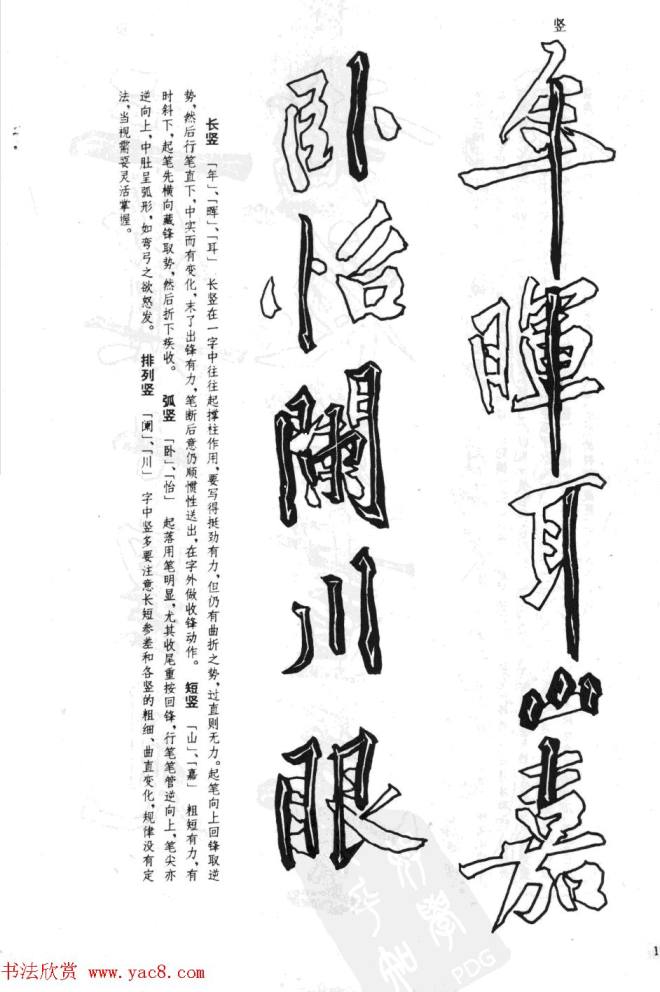 竖
年暉耳山嘉
卧怡闌川眼
长竖 「年」、「晖」、「耳」 长竖在一字中往往起撑柱作用,要写得挺劲有力,但仍有曲折之势,过直则无力。起笔向上回锋取逆
势,然后行笔直下,中实而有变化,末了出锋有力,笔断后意仍顺惯性送出,在字外做收锋动作。 短竖 「山」、「嘉」 粗短有力,有
时斜下,起笔先横向藏锋取势,然后折下疾收。 弧竖 「卧」、「怡」 起落用笔明显,尤其收尾重按回锋,行笔笔管逆向上,笔尖亦
逆向上,中肚呈弧形,如弯弓之欲怒发。 排列竖 「阑」、「川」 字中竖多要注意长短参差和各竖的粗细、曲直变化,规律没有定
法,当视需要灵活掌握。
1
PDG
书法欣赏 www.yac8.com